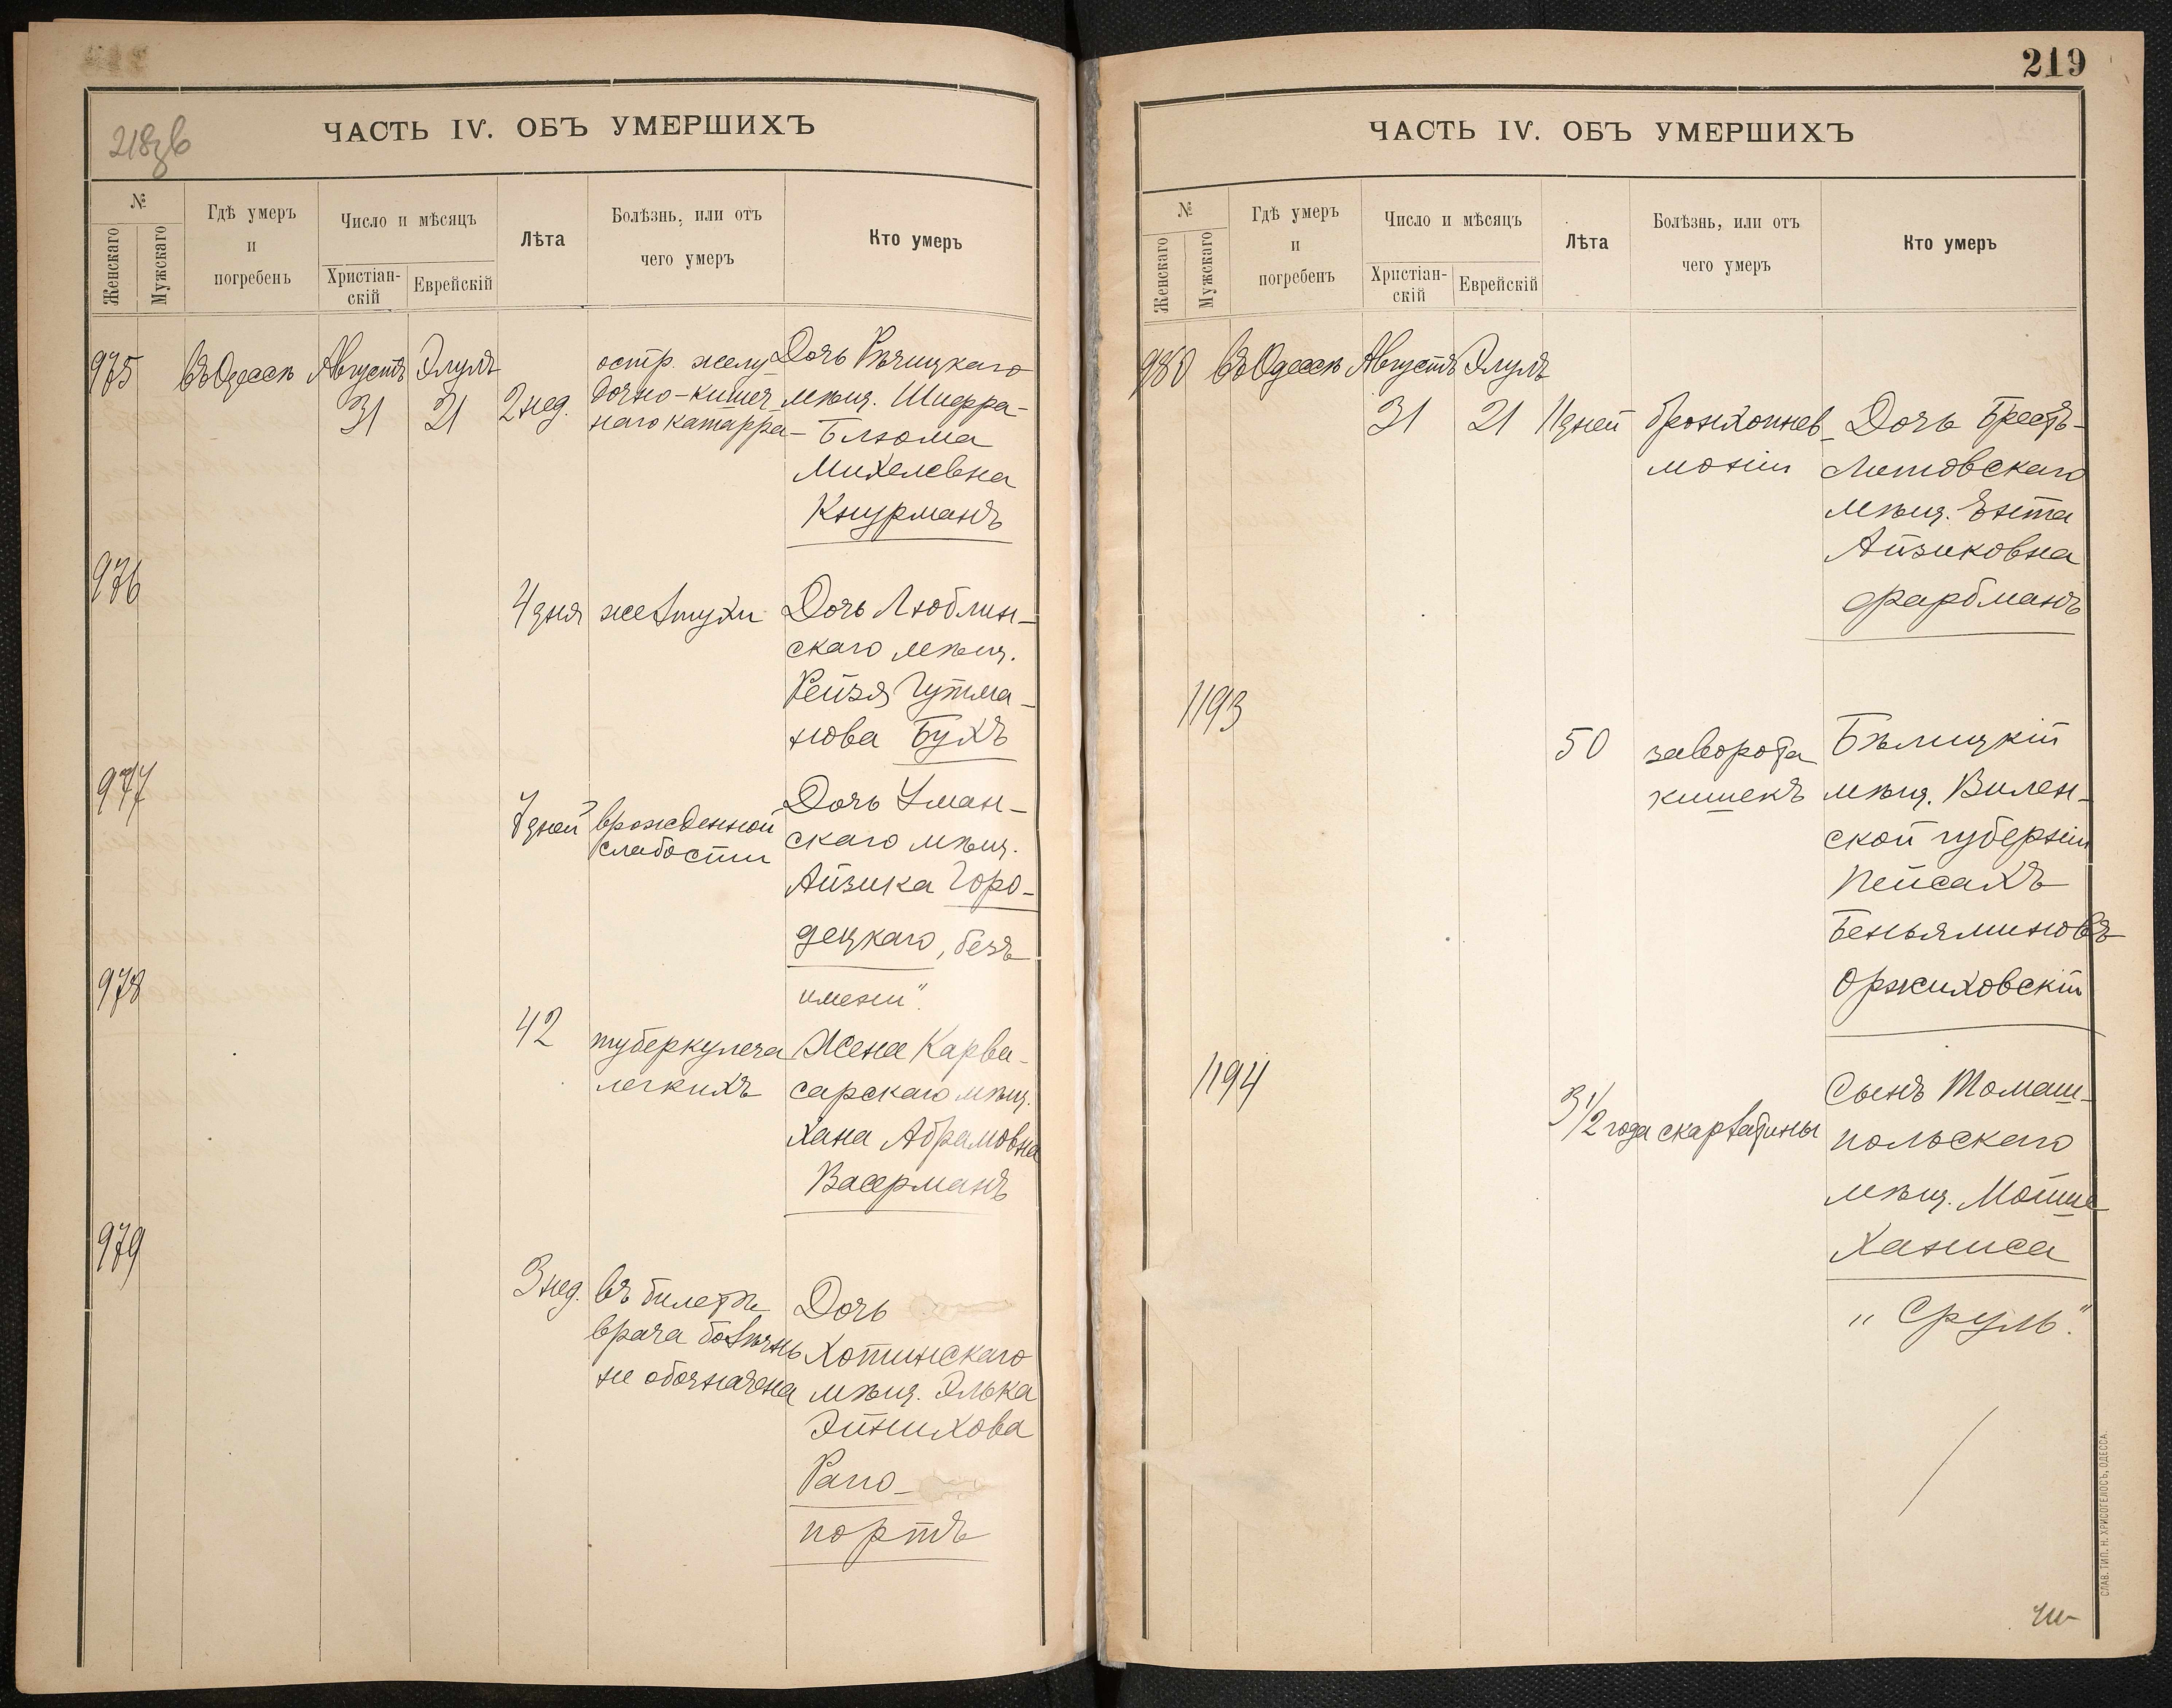 218 зв
ЧАСТЬ IV. ОБЪ УМЕРШИХЪ
№
Женскаго
Мужскаго
Гдѣ умеръ
и
погребенъ
Число и мѣсяцъ
Христіан-
скій
Еврейскій
Лѣта
Болѣзнь, или отъ
чего умеръ
Кто умеръ
975 въ Одессѣ Августъ Элулъ
31 21 2 нед.
остр. желу-
дочно-кишеч-
наго катарра
Дочь Рѣчицкаго
мѣщ. Шифра-
Блюма
Михелевна
Кнурманъ
976
4 дня желтухи
Дочь Люблин-
скаго мѣщ.
Рейзя Гутма-
нова Бухъ
977
7 дней врожденной
слабости
Дочь Уман-
скаго мѣщ.
Айзика Горо-
децкаго, безъ
имени".
978
42 туберкулеза
легкихъ
Жена Карва-
сарскаго мѣщ.
Хана Абрамовна
Васерманъ
979
3 нед. въ билетѣ
врача болѣзнь
не обозначена
Дочь
Хотинскаго
мѣщ. Элька
Эйнихова
Рапо-
портъ
219
ЧАСТЬ IV. ОБЪ УМЕРШИХЪ
№
Женскаго
Мужскаго
Гдѣ умеръ
и
погребенъ
Число и мѣсяцъ
Христіан-
скій
Еврейскій
Лѣта
Болѣзнь, или отъ
чего умеръ
Кто умеръ
980 въ Одессѣ Августъ Элулъ
31 21 11 дней бронхопнев-
моніи
Дочь Брестъ-
Литовскаго
мѣщ. Ента
Айзиковна
Фарбманъ
1193
50 заворота
кишекъ
Бѣлицкій
мѣщ. Вилен-
ской губерніи
Пейсахъ
Беньяминовъ
Оржиховскій
1194
3 1/2 года скарлатины
Сынъ Томаш-
польскаго
мѣщ. Мойше
Ханиса
„Сруль".
СЛАВ. ТИП. Н. ХРИСОГЕЛОСЪ, ОДЕССА.